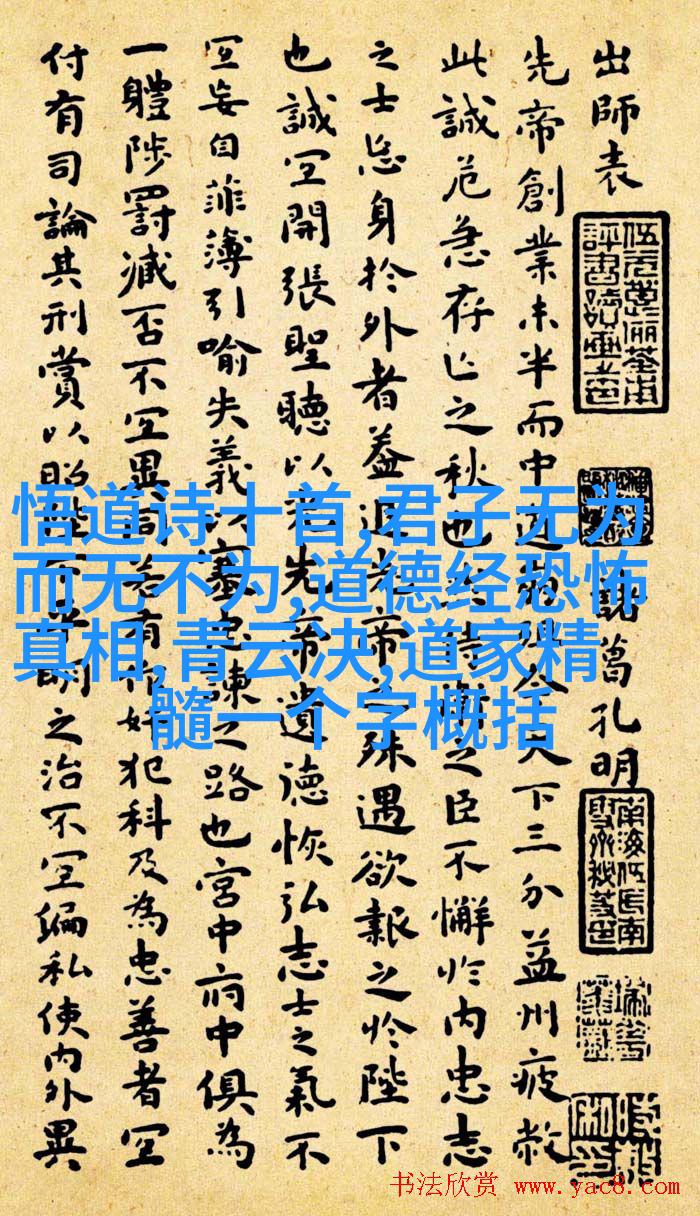 出師表
諸葛孔明
先帝創業未半而中道崩殂今天下三分益州疲敝
此誠危急存亡之秋也然侍衛之臣不懈於內忠志
之士忘身於外者蓋追先帝之殊遇欲報之於陛下
也誠宜開張聖聽以光先帝遺德恢弘志士之氣不
宜妄自菲薄引喻失義以塞忠諫之路也宮中府中俱為
一體陟罰臧否不宜異同若有作奸犯科及為忠善者宜
付有司論其刑賞以昭陛下平明之治不宜偏私使內外異
悟道诗十首,君子无为
而无不为,道德经恐怖
真相,青云决,道家精
髓一个字概括
书法欣赏 www.yac8.com